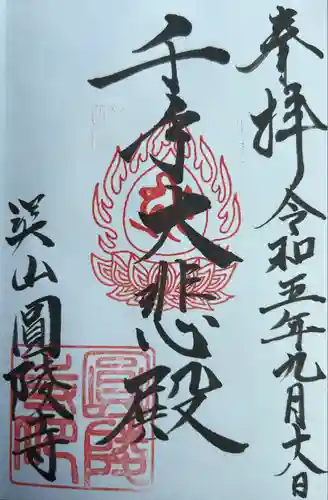 奉拝 令和五年九月十八日
千手大悲殿
呉山圓陵寺